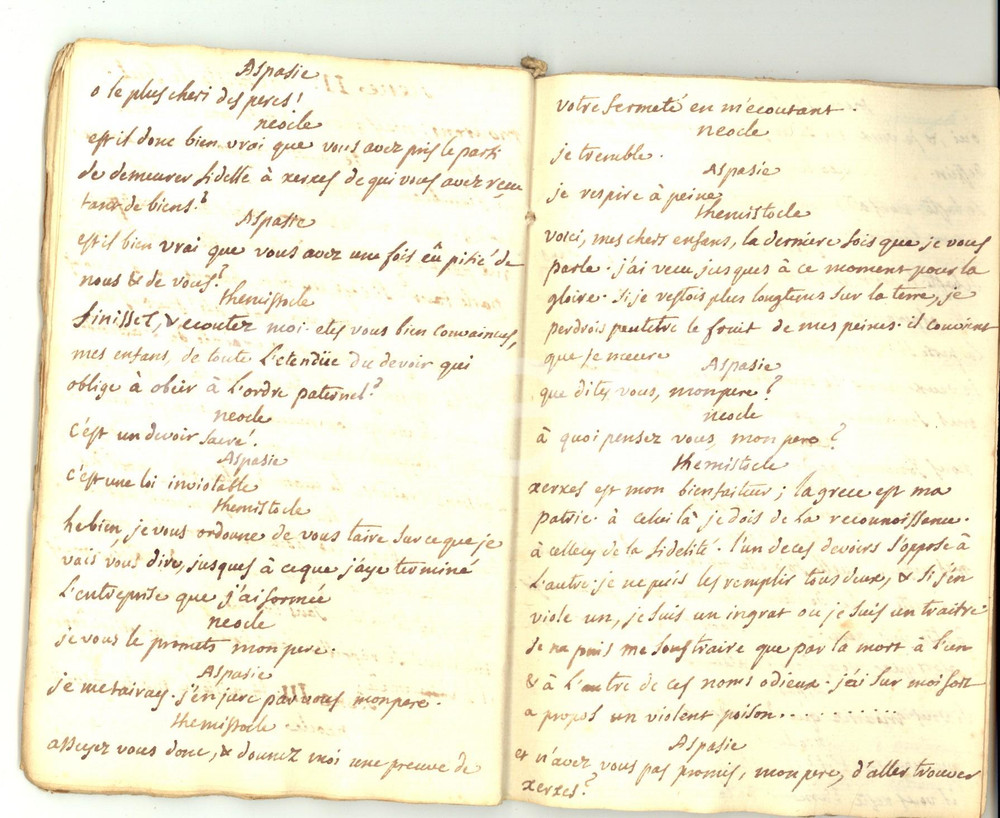 Aspasie
o le plus cheri des peres!
neocle
est il donc bien vrai que vous avez pris le parti
de demeurer fidelle à xerxes de qui vous avez reçu
tant de biens?
Aspasie
est il bien vrai que vous avez une fois eû pitié de
nous & de vous?
themistocle
finissez, & ecoutez moi. etes vous bien convaincus,
mes enfans, de toute L'etendüe du devoir qui
oblige à obeir à L'ordre paternel?
neocle
c'est un devoir sacré.
Aspasie
c'est une loi inviolable
themistocle
he bien, je vous ordonne de vous taire sur ce que je
vais vous dire, jusques à ce que j'aye terminé
L'entreprise que j'ai formée
neocle
je vous le promets mon pere.
Aspasie
je me tairay. j'en jure par vous mon pere.
themistocle
asseyez vous donc, & donnez moi une preuve de
votre fermeté en m'ecoutant.
neocle
je tremble.
Aspasie
je respire à peine
themistocle
voici, mes chers enfans, la derniere fois que je vous
parle. j'ai vecu jusques à ce moment pour la
gloire. si je restois plus longtems sur la terre, je
perdrois peutetre le fruit de mes peines. il convient
que je meure
Aspasie
que dites vous, mon pere?
neocle
à quoi pensez vous, mon pere?
themistocle
xerxes est mon bienfaiteur; la grece est ma
patrie. à celui là je dois de la reconnoissance.
à cellecy de la fidelité. l'un de ces devoirs s'oppose à
L'autre. je ne puis les remplir tous deux, & si j'en
viole un, je suis un ingrat ou je suis un traitre
je ne puis me soustraire que par la mort à l'un
& à L'autre de ces noms odieux. j'ai sur moi fort
a propos un violent poison..........
Aspasie
et n'avez vous pas promis, mon pere, d'aller trouver
xerxes?